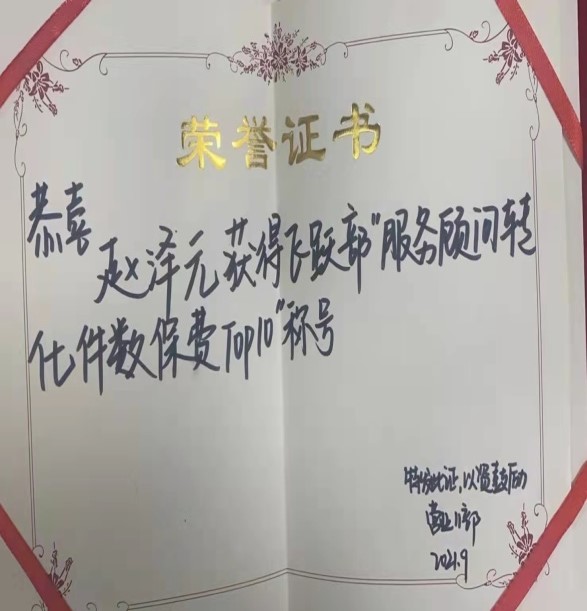 荣誉证书
恭喜
赵泽元获得飞跃部"服务顾问转
化件数保费Top10"称号
特发此证,以资鼓励
营业部
2021.9